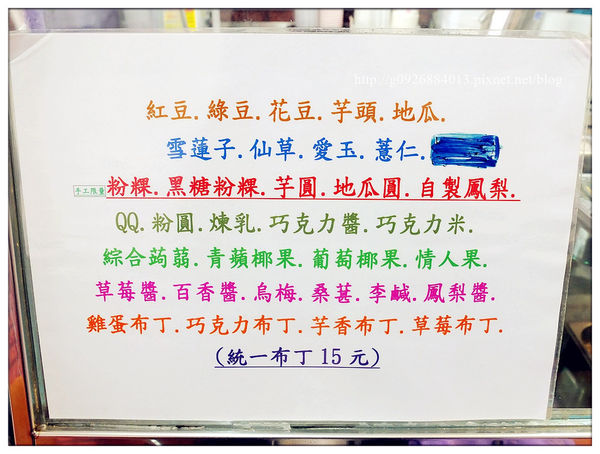 http://g0926884013.pixnet.net/blog
紅豆.綠豆.花豆.芋頭.地瓜.
雪蓮子.仙草.愛玉.薏仁.
手工限量 粉粿.黑糖粉粿.芋圓.地瓜圓.自製鳳梨.
QQ.粉圓.煉乳.巧克力醬.巧克力米.
綜合蒟蒻.青蘋椰果.葡萄椰果.情人果.
草莓醬.百香醬.烏梅.桑葚.李鹹.鳳梨醬.
雞蛋布丁.巧克力布丁.芋香布丁.草莓布丁.
(統一布丁 15 元)